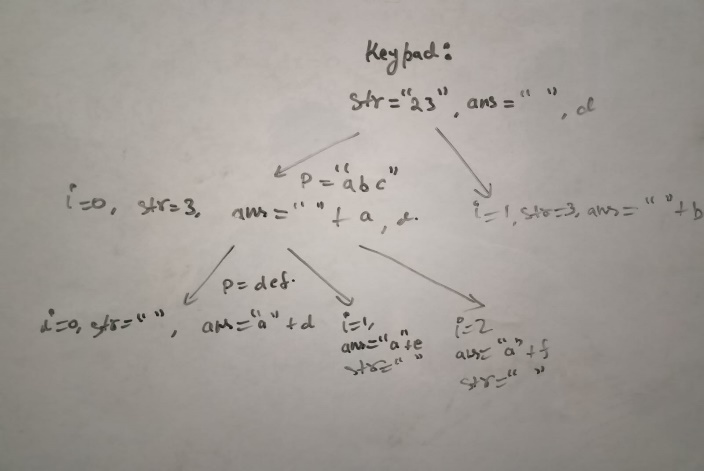 Keypad:
str="23", ans=" ", d
P="abc"
i=0, str=3, ans=" "+a, d.
i=1, str=3, ans=" "+b
P=def.
i=0, str=" ", ans="a"+d
i=1,
ans="a"+e
str=" "
i=2
ans="a"+f
str=" "